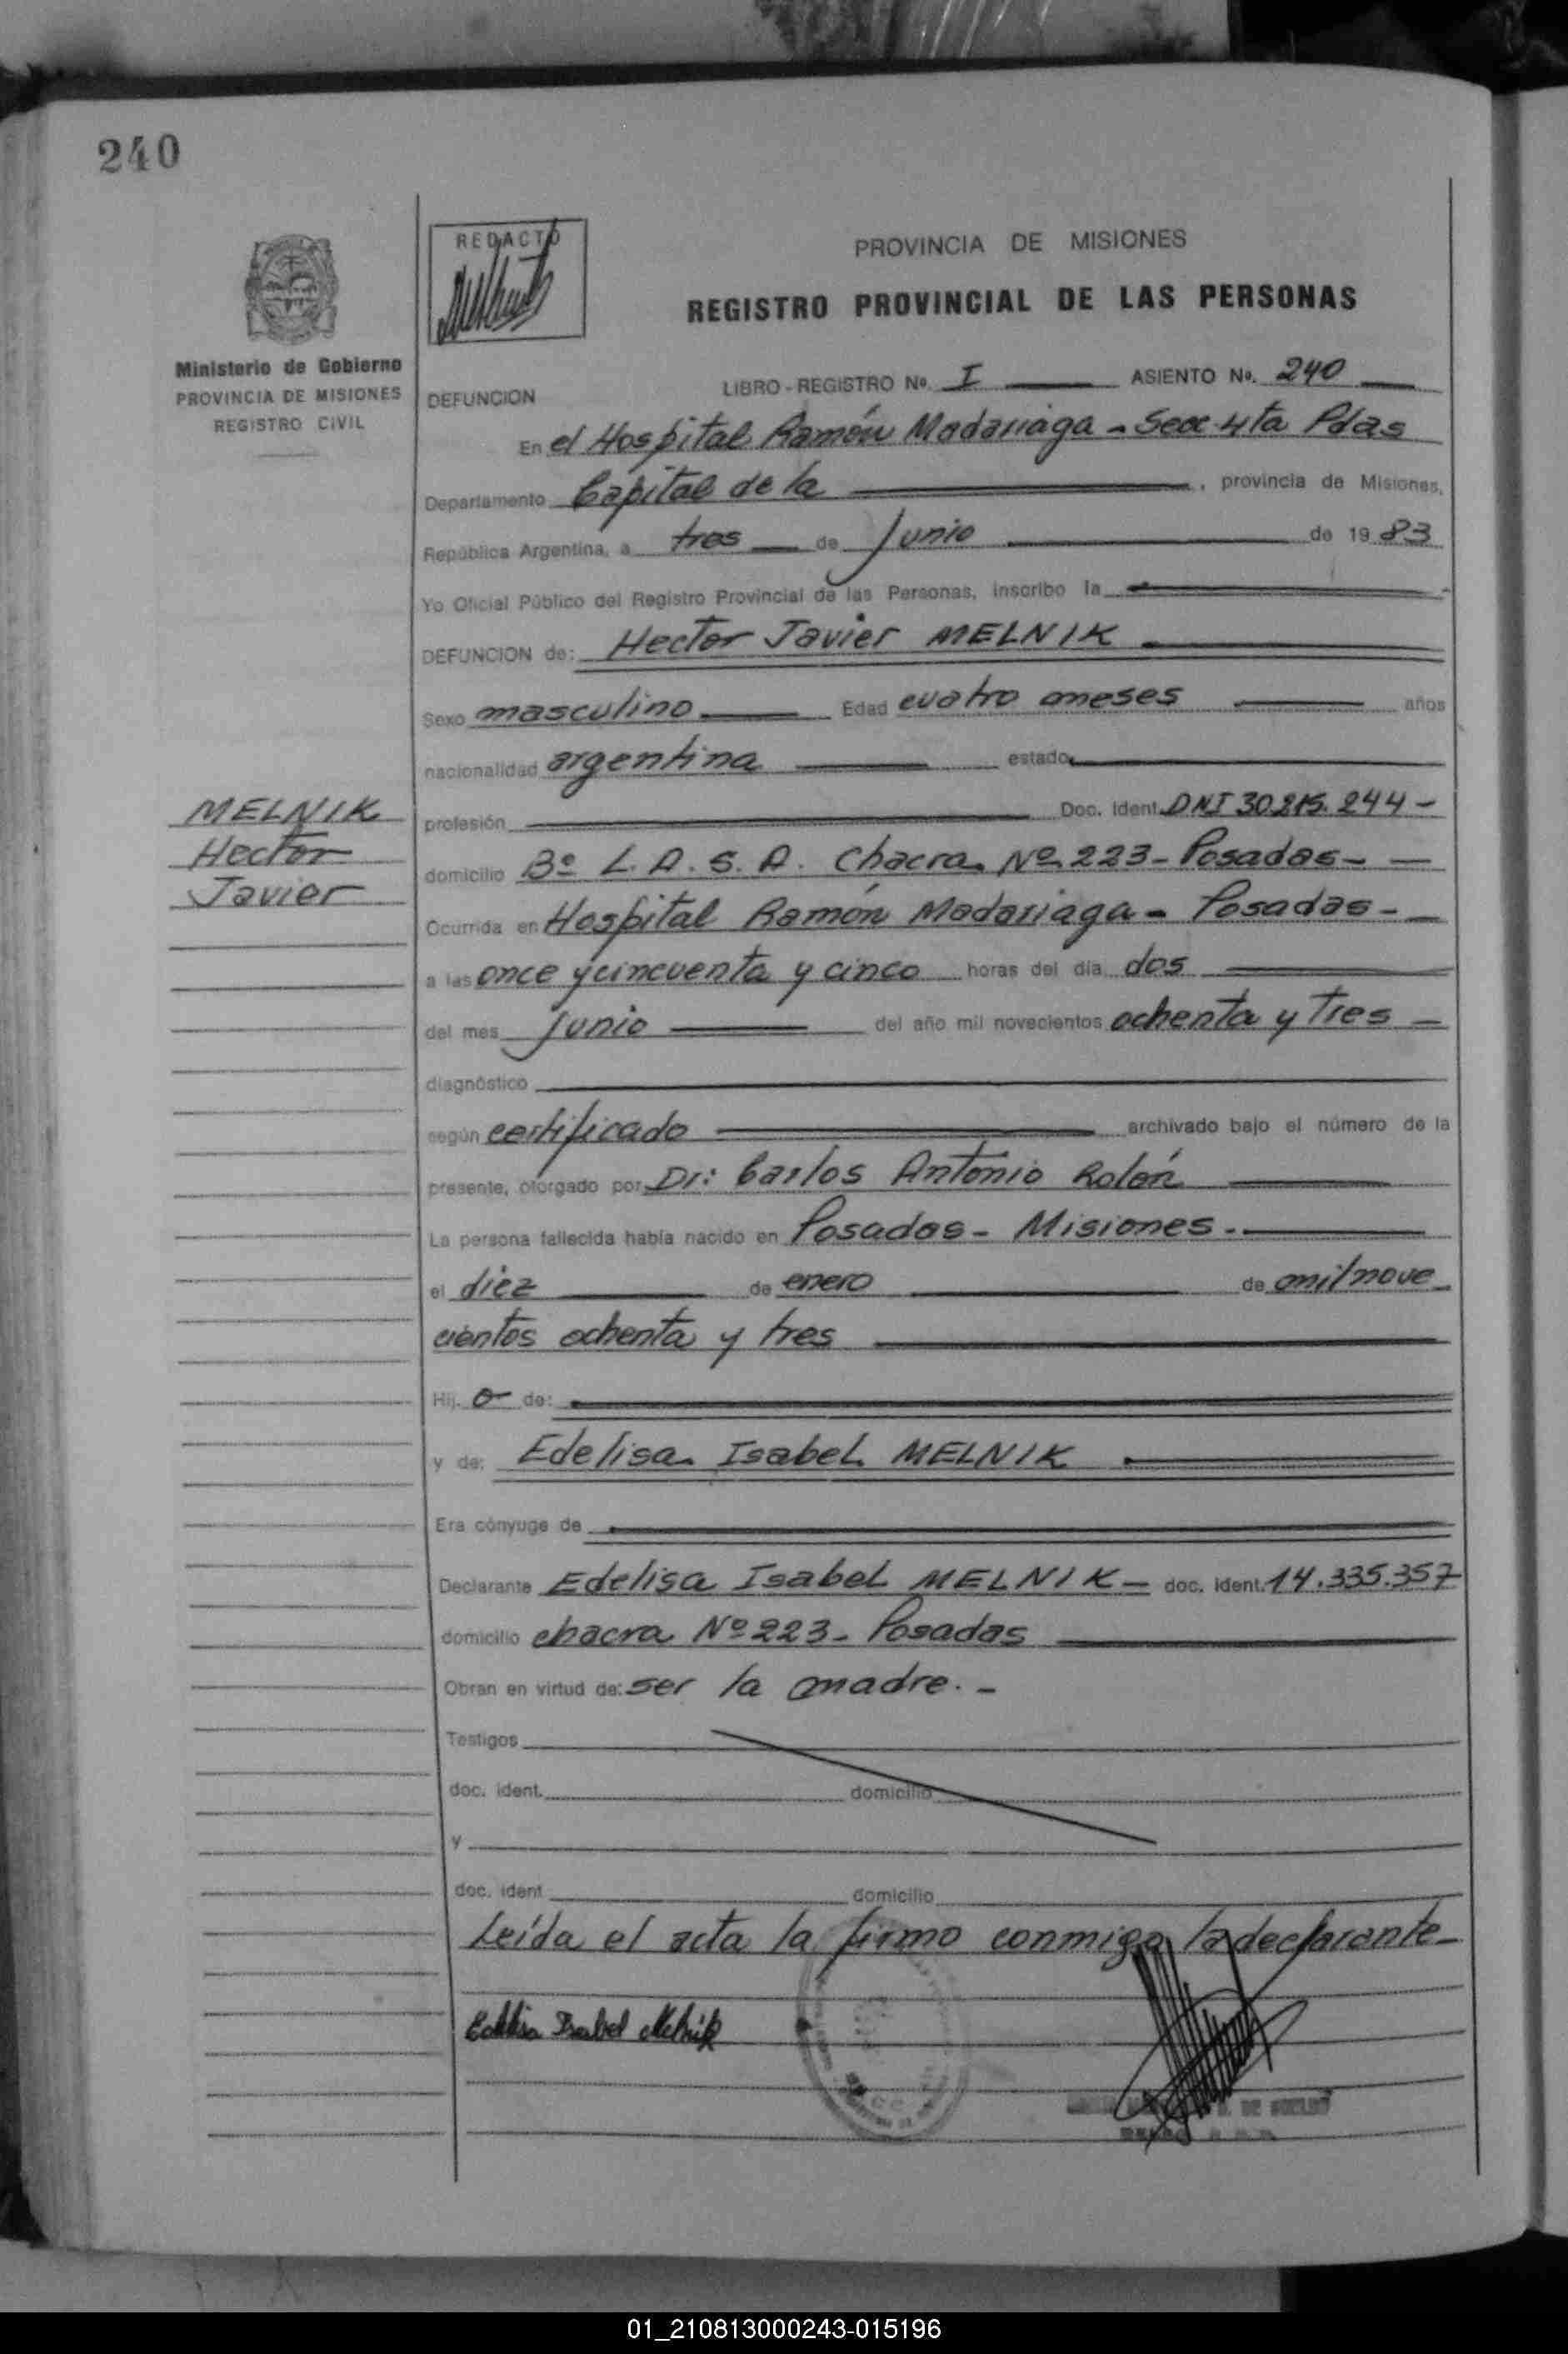 240
REDACTO
PROVINCIA DE MISIONES
REGISTRO PROVINCIAL DE LAS PERSONAS
Ministerio de Gobierno
PROVINCIA DE MISIONES
REGISTRO CIVIL
DEFUNCION LIBRO-REGISTRO No. I ASIENTO No. 240
En el Hospital Ramón Madariaga - Secc 4ta Pdas
Departamento Capital de la , provincia de Misiones,
República Argentina, a tres de Junio de 1983
Yo Oficial Público del Registro Provincial de las Personas, inscribo la
DEFUNCION de: Hector Javier MELNIK
Sexo masculino Edad cuatro meses años
nacionalidad argentina estado
MELNIK
Hector
Javier
profesión Doc. Ident. DNI 30.215.244-
domicilio Bº L.A.S.A. Chacra Nº 223- Posadas-
Ocurrida en Hospital Ramón Madariaga - Posadas-
a las once y cincuenta y cinco horas del día dos
del mes junio del año mil novecientos ochenta y tres
diagnóstico
según certificado archivado bajo el número de la
presente, otorgado por Dr: Carlos Antonio Rolón
La persona fallecida había nacido en Posadas- Misiones.-
el diez de enero de mil nove
cientos ochenta y tres
Hij. o de:
y de: Edelisa Isabel MELNIK
Era cónyuge de
Declarante Edelisa Isabel MELNIK- doc. ident. 14.335.357
domicilio chacra Nº 223- Posadas
Obran en virtud de: ser la madre.-
Testigos
doc. ident. domicilio
y
doc. ident domicilio
Leída el acta la firmo conmigo la declarante-
Edelisa Isabel Melnik
01_210813000243-015196